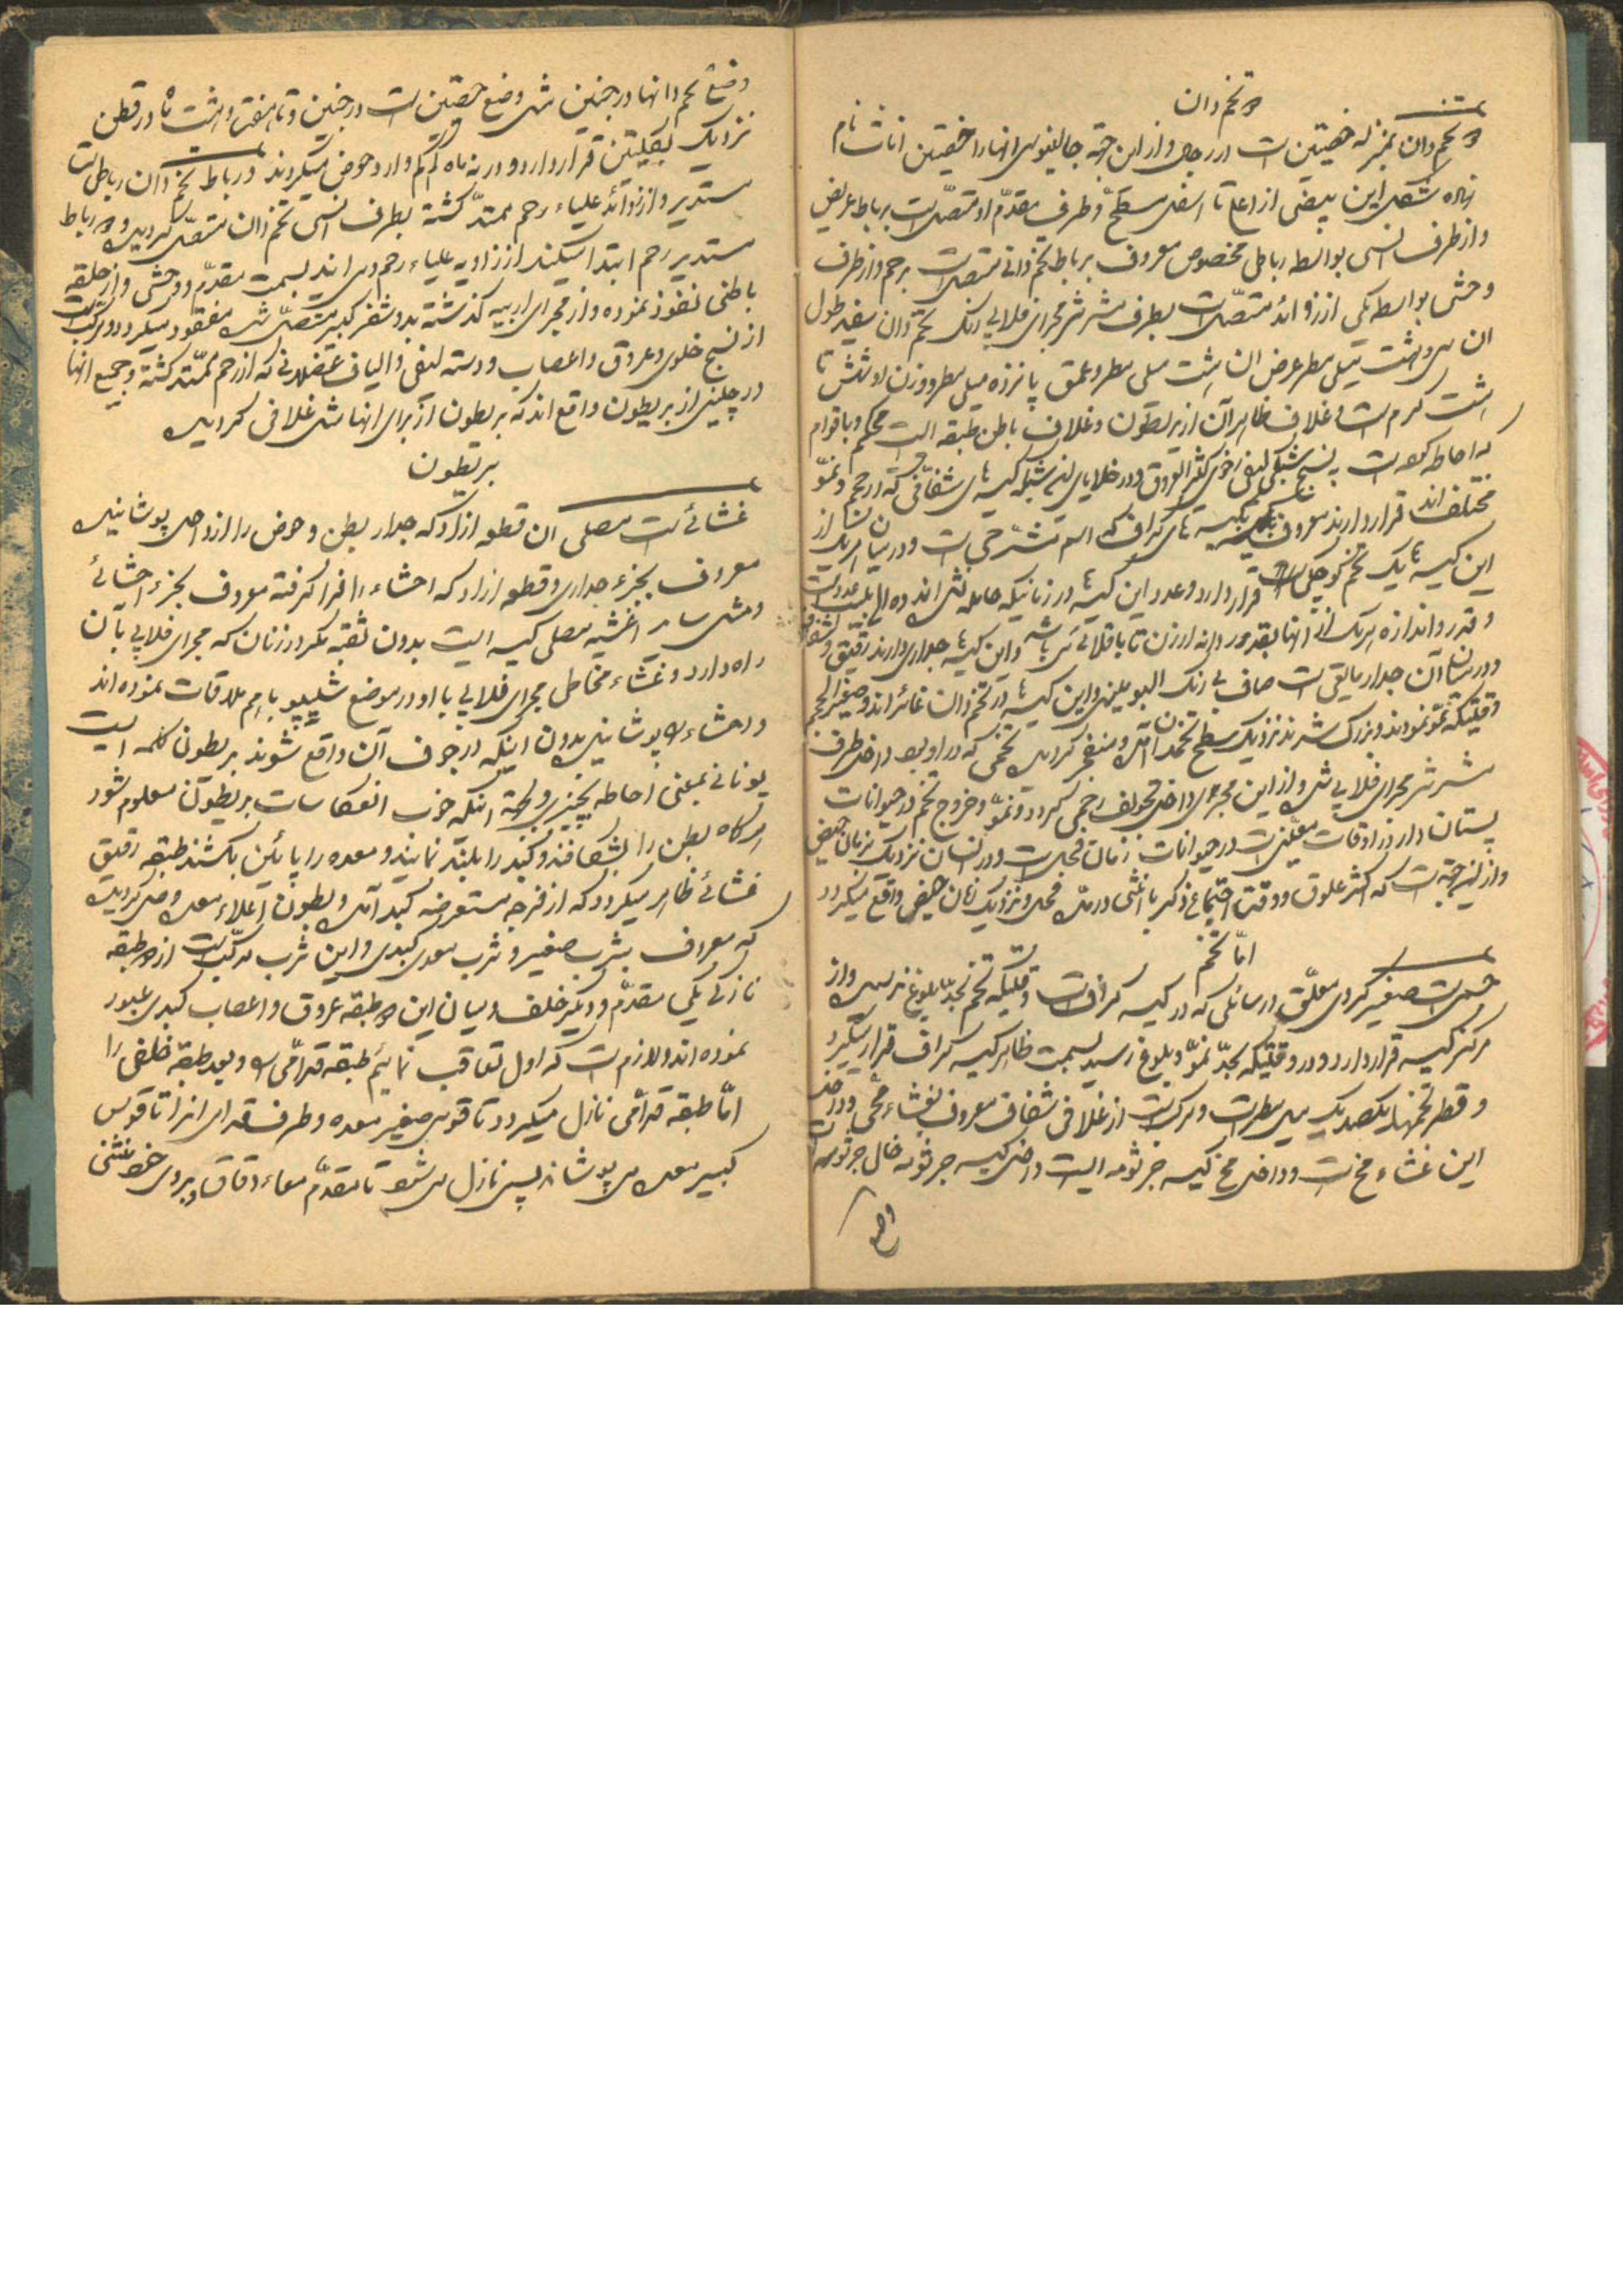 دو تخم دان
دو تخم دان بمنزله خصیتین است در رجال و از این جهة جالینوس انها را خصیتین اناث نام
نهاده شکل این بیضی از اعلی تا اسفل مسطح و طرف مقدم او متصل است برباط عریض
و از طرف انسی بواسطه رباطی مخصوص معروف برباط تخم دانی متصل است برحم و از طرف
وحشی بواسطه یکی از زوائد متصل است بطرف شرشر مجرای فلاپی رنک تخم دان سفید طول
ان سی و هشت میلی مطر عرض ان هشت میلی مطر و عمق پانزده میلی مطر و وزن او شش تا
هشت کرم است و غلاف ظاهر آن از بریطون و غلاف باطن طبقه ایست محکم و با قوام
که احاطه کرده است بنسج شبکی لیفی رخوی کثیر العروق و در خلایای این شبکه کیسه های شفافی که در حجم و نمو
مختلف اند قرار دارند معروف بکیسه های کراف که اسم مشرحی است و در میان هر یک از
این کیسه ها یک تخم کوچکی قرار دارد و عدد این کیسه ها در زنانیکه حامله نشده اند ده الی بیست عدد است
و قدر و اندازه هر یک از انها بقدر دانه ارزن تا باقلائی می باشد و این کیسه ها جداری دارند رقیق و شفاف
و در میان آن جدار مایعی است صاف بی رنک البومینی و این کیسه ها در تخم دان غائر اند و صغیر الحجم
وقتیکه نمو نمودند و بزرک شدند نزدیک بسطح تخمدان آمده و منفجر کردیده تخمی که در او بود داخل طرف
شرشر مجرای فلاپی شده و از این مجری داخل تجویف رحمی کردد و نمو و خروج تخم در حیوانات
پستان دار در اوقات معینی است در حیوانات زمان فحلی است و در انسان نزدیک بزمان حیض
و از این جهة است که اکثر علوق در وقت اجتماع ذکر با انثی در زمان فحلی و نزدیک زمان حیض واقع میکردد
امّا تخم
جسمی است صغیر کروی معلق در مائی که در کیسه کراف است وقتیکه تخم بحد بلوغ نرسیده در
مرکز کیسه قرار دارد و در وقتیکه بحد نمو و بلوغ رسید بسمت ظاهر کیسه کراف قرار میکیرد
و قطر تخمها یکصد یک میلی مطر است و مرکب است از غلافی شفاف معروف بغشاء محی و در داخل
این غشاء مح است و داخل مح کیسه جرثومه ایست و داخل کیسه جرثومه خال جرثومه است
وضع
وضع تخم دانها در جنین مثل وضع خصیتین است در جنین و تا هفت و هشت ماه در قطن
نزدیک بکلیتین قرار دارد و در نه ماه کم کم وارد حوض میکردند و رباط تخم دان رباطی است
مستدیر و از زوائد علیاء رحم ممتد کشته بطرف انسی تخم دان متصل کردیده و دو رباط
مستدیر رحم ابتدا میکند از زاویه علیاء رحم و می اید بسمت مقدم و وحشی و از حلقه
باطنی نفوذ نموده و از مجرای اربیه کذشته بدو شفر کبیر متصل شده مفقود میکردد و مرکب است
از نسج خلوی و عروق و اعصاب و دسته لیفی و الیاف عضلانی که از رحم ممتد کشته و جمیع انها
در چینی از بریطون واقع اند که بریطون از برای انها مثل غلافی کردیده
بریطون
غشائی است مصلی ان قطعه از او که جدار بطن و حوض را از داخل پوشانیده
معروف بجزء جداری و قطعه از او که احشاء را فرا کرفته معروف بجزء احشائی
و مثل سایر اغشیه مصلی کیسه ایست بدون ثقبه مکر در زنان که مجرای فلاپی بآن
راه دارد و غشاء مخاطی مجرای فلاپی با او در موضع شیپور باهم ملاقات نموده اند
و احشاء را پوشانیده بدون اینکه در جوف آن واقع شوند بریطون کلمه ایست
یونانی بمعنی احاطه بچیزی و بجهة اینکه خوب انعکاسات بریطون معلوم شود
هرکاه بطن را بشکافند و کبد را بلند نمایند و معده را پائین بکشند طبقه رقیق
غشائی ظاهر میکردد که از فرجه مستعرضه کبد آمده و بطون اعلاء معده وصل کردیده
که معروف بثرب صغیر و ثرب معدی کبدی و این ثرب مرکب است از دو طبقه
نازکی یکی مقدم و دیکر خلف و میان این دو طبقه عروق و اعصاب کبدی عبور
نموده اند و لازم است که اول تعاقب نمائیم طبقه قدامی را و بعد طبقه خلفی را
امّا طبقه قدامی نازل میکردد تا قوس صغیر معده و طرف قدامی انرا تا قوس
کبیر معده می پوشاند پس نازل می شود تا مقدم معاء دقاق و بروی خود منثنی